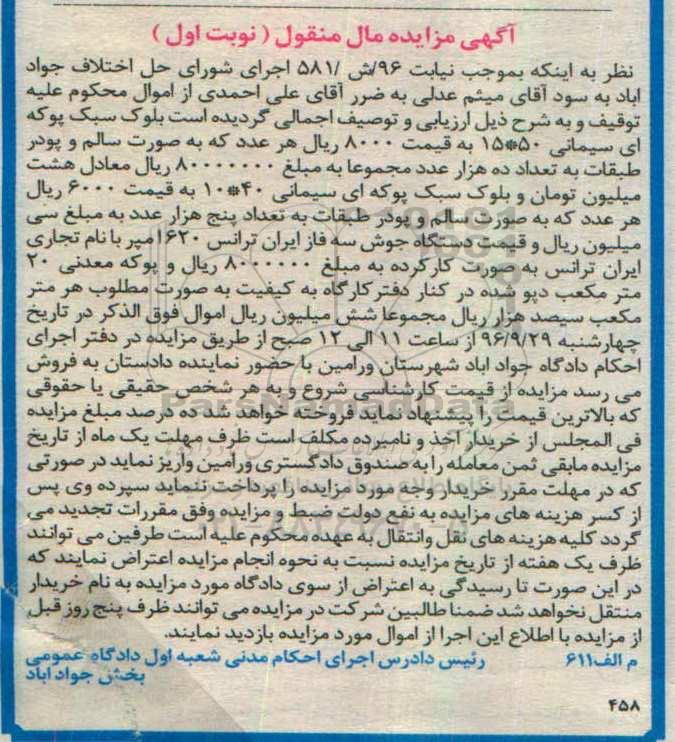 آگهی مزایده مال منقول ( نوبت اول )
نظر به اینکه بموجب نیابت ۹۶/ش /۵۸۱ اجرای شورای حل اختلاف جواد
اباد به سود آقای میثم عدلی به ضرر آقای علی احمدی از اموال محکوم علیه
توقیف و به شرح ذیل ارزیابی و توصیف اجمالی گردیده است بلوک سبک پوکه
ای سیمانی ۵۰*۱۵ به قیمت ۸۰۰۰ ریال هر عدد که به صورت سالم و پودر
طبقات به تعداد ده هزار عدد مجموعا به مبلغ ۸۰۰۰۰۰۰۰ ریال معادل هشت
میلیون تومان و بلوک سبک پوکه ای سیمانی ۴۰*۱۰ به قیمت ۶۰۰۰ ریال
هر عدد که به صورت سالم و پودر طبقات به تعداد پنج هزار عدد به مبلغ سی
میلیون ریال و قیمت دستگاه جوش سه فاز ایران ترانس ۱۶۲۰ امپر با نام تجاری
ایران ترانس به صورت کارکرده به مبلغ ۸۰۰۰۰۰۰ ریال و پوکه معدنی ۲۰
متر مکعب دپو شده در کنار دفتر کارگاه به کیفیت به صورت مطلوب هر متر
مکعب سیصد هزار ریال مجموعا شش میلیون ریال اموال فوق الذکر در تاریخ
چهارشنبه ۹۶/۹/۲۹ از ساعت ۱۱ الی ۱۲ صبح از طریق مزایده در دفتر اجرای
احکام دادگاه جواد اباد شهرستان ورامین با حضور نماینده دادستان به فروش
می رسد مزایده از قیمت کارشناسی شروع و به هر شخص حقیقی یا حقوقی
که بالاترین قیمت را پیشنهاد نماید فروخته خواهد شد ده درصد مبلغ مزایده
فی المجلس از خریدار اخذ و نامبرده مکلف است ظرف مهلت یک ماه از تاریخ
مزایده مابقی ثمن معامله را به صندوق دادگستری ورامین واریز نماید در صورتی
که در مهلت مقرر خریدار وجه مورد مزایده را پرداخت ننماید سپرده وی پس
از کسر هزینه های مزایده به نفع دولت ضبط و مزایده وفق مقررات تجدید می
گردد کلیه هزینه های نقل وانتقال به عهده محکوم علیه است طرفین می توانند
ظرف یک هفته از تاریخ مزایده نسبت به نحوه انجام مزایده اعتراض نمایند که
در این صورت تا رسیدگی به اعتراض از سوی دادگاه مورد مزایده به نام خریدار
منتقل نخواهد شد ضمنا طالبین شرکت در مزایده می توانند ظرف پنج روز قبل
از مزایده با اطلاع این اجرا از اموال مورد مزایده بازدید نمایند.
م الف ۶۱۱ رئیس دادرس اجرای احکام مدنی شعبه اول دادگاه عمومی
بخش جواد اباد
۴۵۸